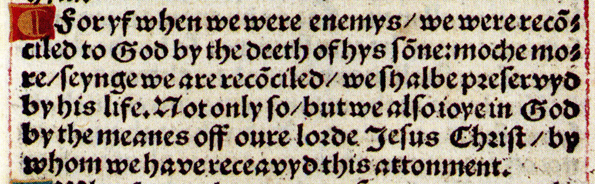 For yf when we were enemys / we were recõ⸗
ciled to God by the deeth of hys sõne: moche mo⸗
re / seynge we are recõciled / we shalbe preservyd
by his life. Not only so / but we also ioye in God
by the meanes off oure lorde Jesus Christ / by
whom we have receavyd this attonment.